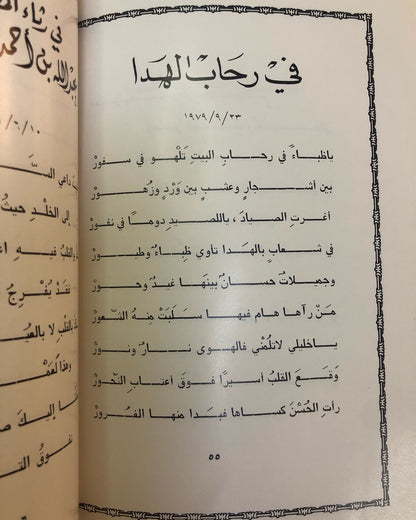 في رحاب الهدا
١٩٧٩/٩/٢٣
ياظباءً في رحاب البيتِ تَلْهو في سفورْ
بين أشجارٍ وعشبٍ بين وَرْدٍ وزُهورْ
أغرتِ الصيادَ، ياللصيدِ دوماً في نفورْ
في شعابٍ بالهدا تأوي ظِباءٌ وطيورْ
وجميلاتٌ حسانٌ بينَها غيدٌ وحورْ
مَنْ رآها هام فيها سَلَبَتْ مِنهُ الشعورْ
ياخليلي لاتلُمْني فالهوى نارٌ ونورْ
وَقَعَ القلبُ أسيراً فوقَ أعتابِ النّحورْ
رأتِ الحُسْنَ كساها فبَدا منها الغُرورْ
٥٥
في رثاء
عبدالله بن أحمد
٦/١٠
راعي
إلى الخلْدِ حيثُ
والقلبُ فيهِ
نَفْدُ يُفْرِجُ
بالقلبِ لا بالعيـ
وهذا
إليكَ
تفوقُ